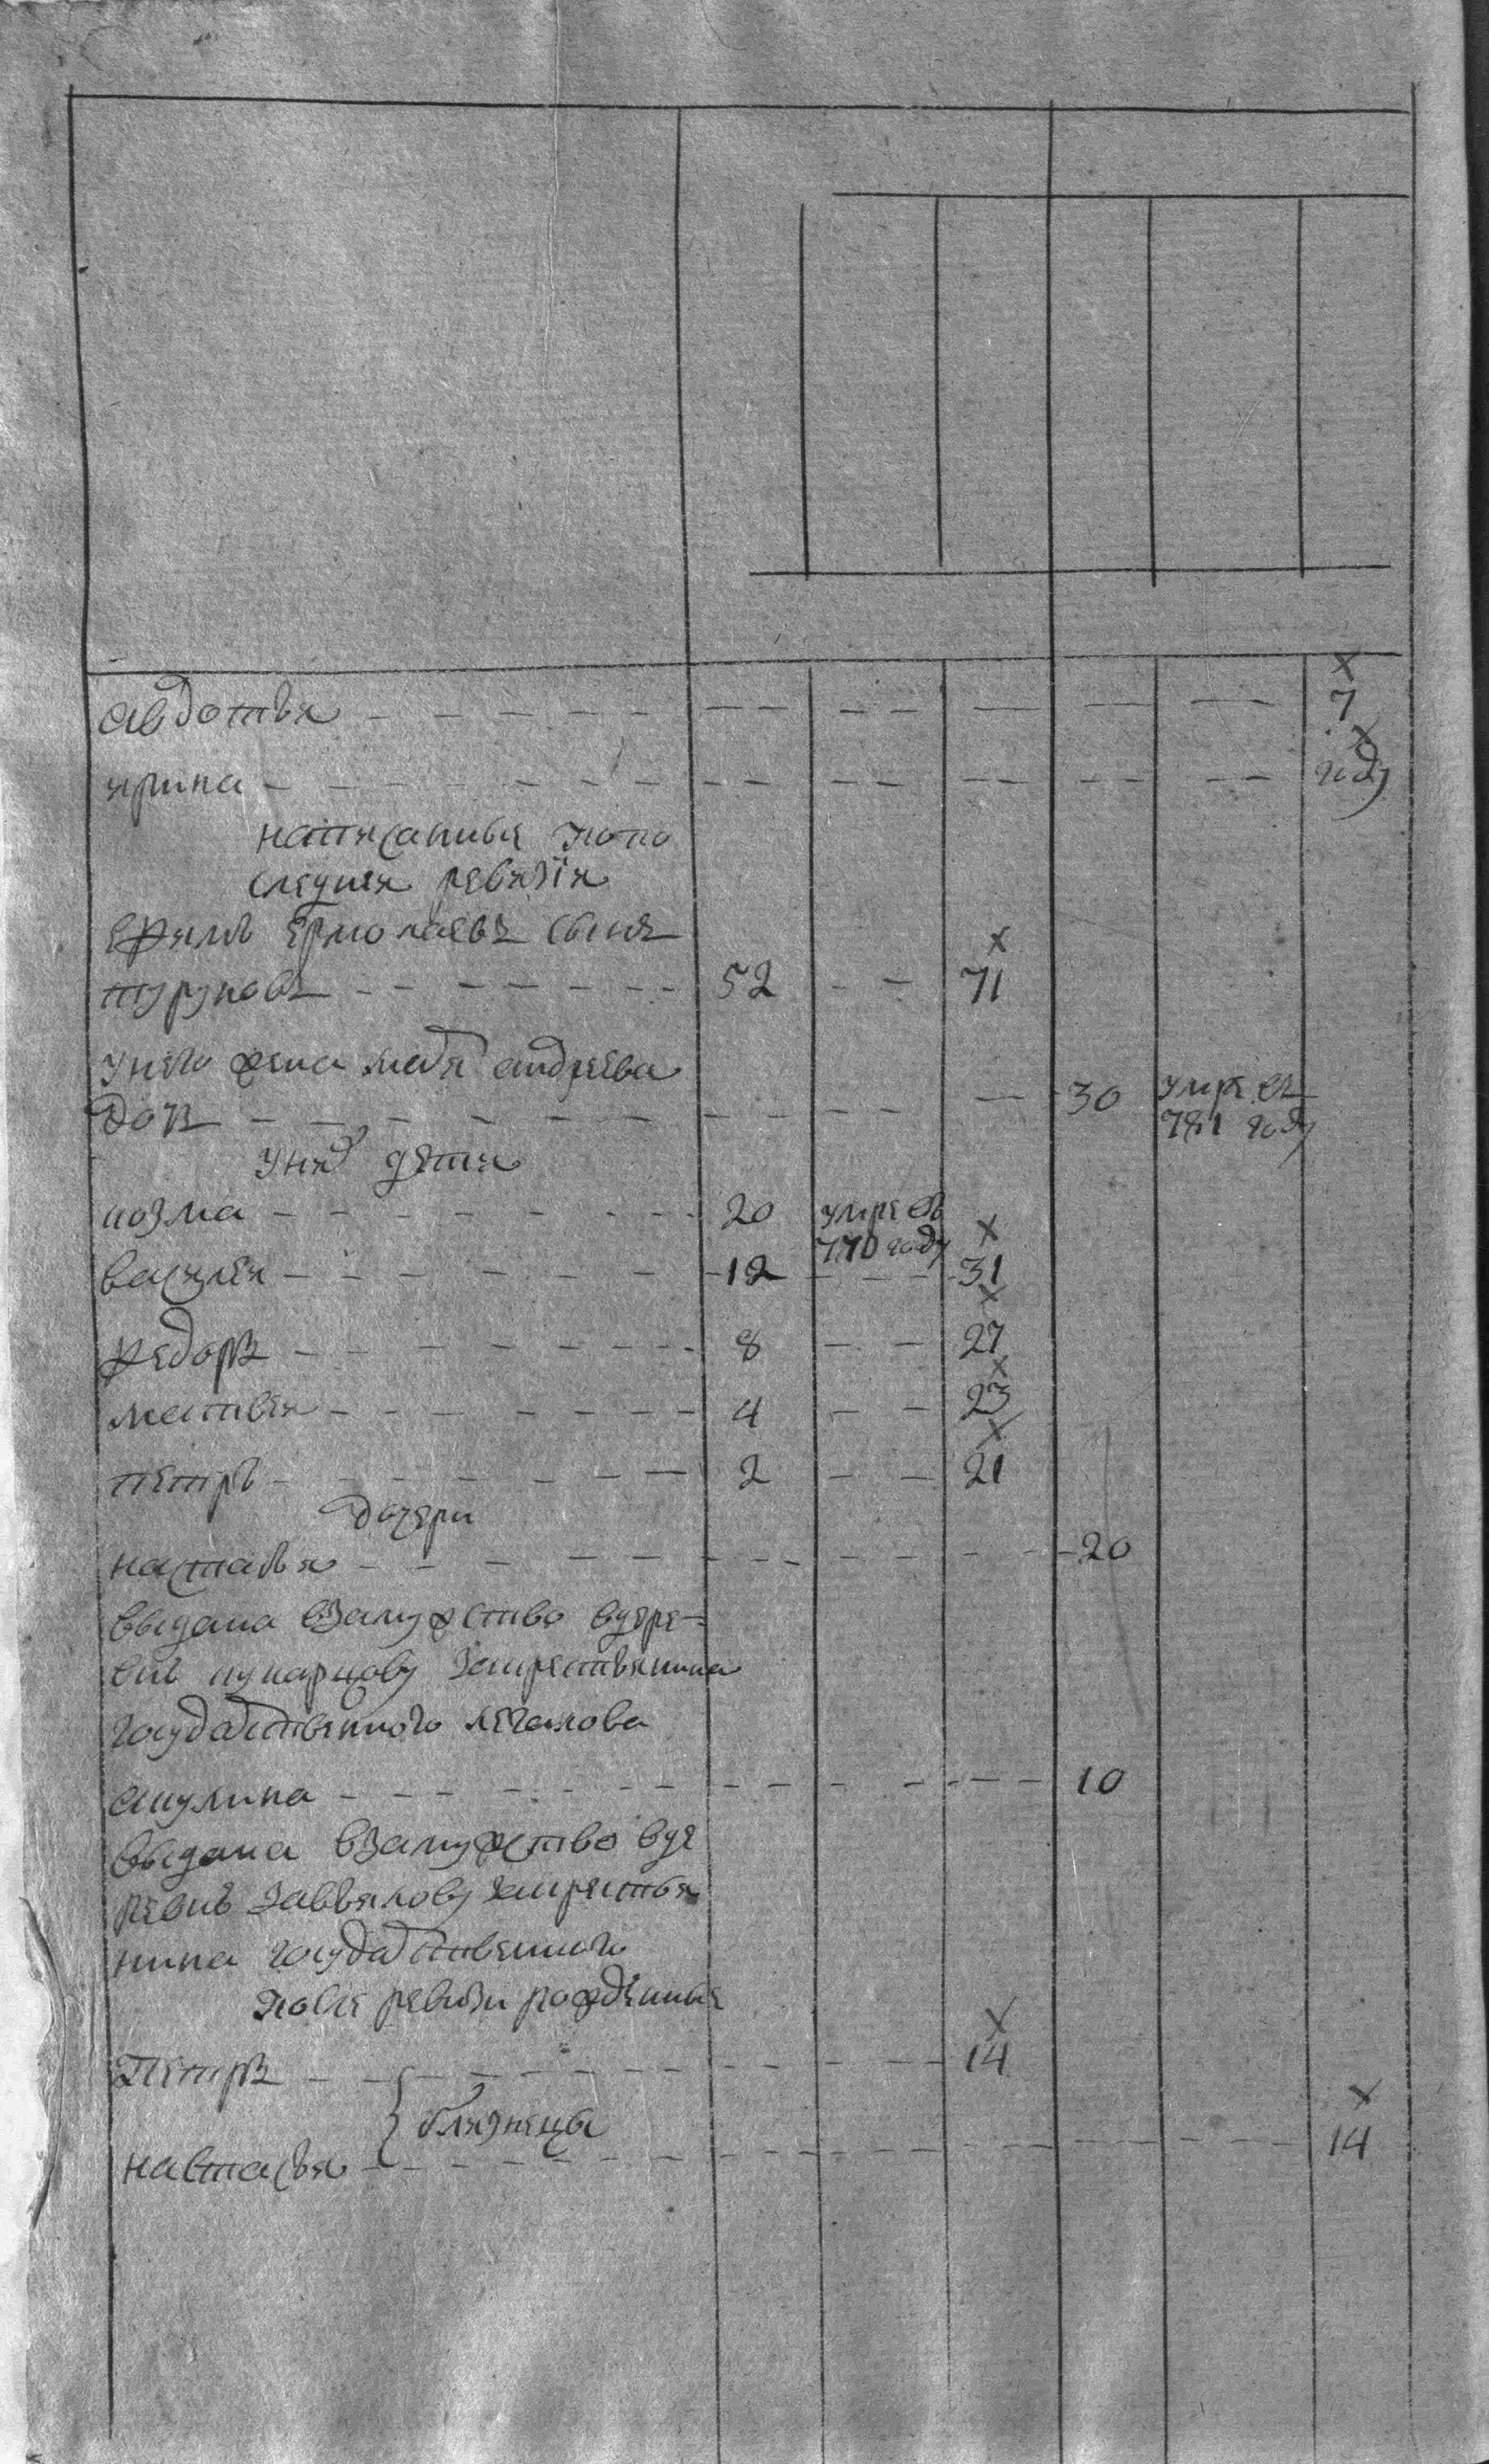 авдотья — — — 7
ирина — — — году
написанныя по по
следней ревизiи
ефимъ ермолаевъ сынъ
туруновъ — — — 52 — — 71
у него жена мавра андреева
дочь — — — 30 умре въ 781 году
у них дети
козма — — — 20 умре въ 770 году
василей — — — 12 — — 31
федоръ — — — 8 — — 27
матвей — — — 4 — — 23
петръ — — — 2 — — 21
дочери
настасья — — — 20
выдана взамужство вдере-
внь кукарцову за крестьянина
государственного
акулина — — — 10
выдана взамужство вде
ревнь завьялову за крестья
нина государственного
после ревизи рожденные
петръ — — — 14
близнецы
настасья — — — 14